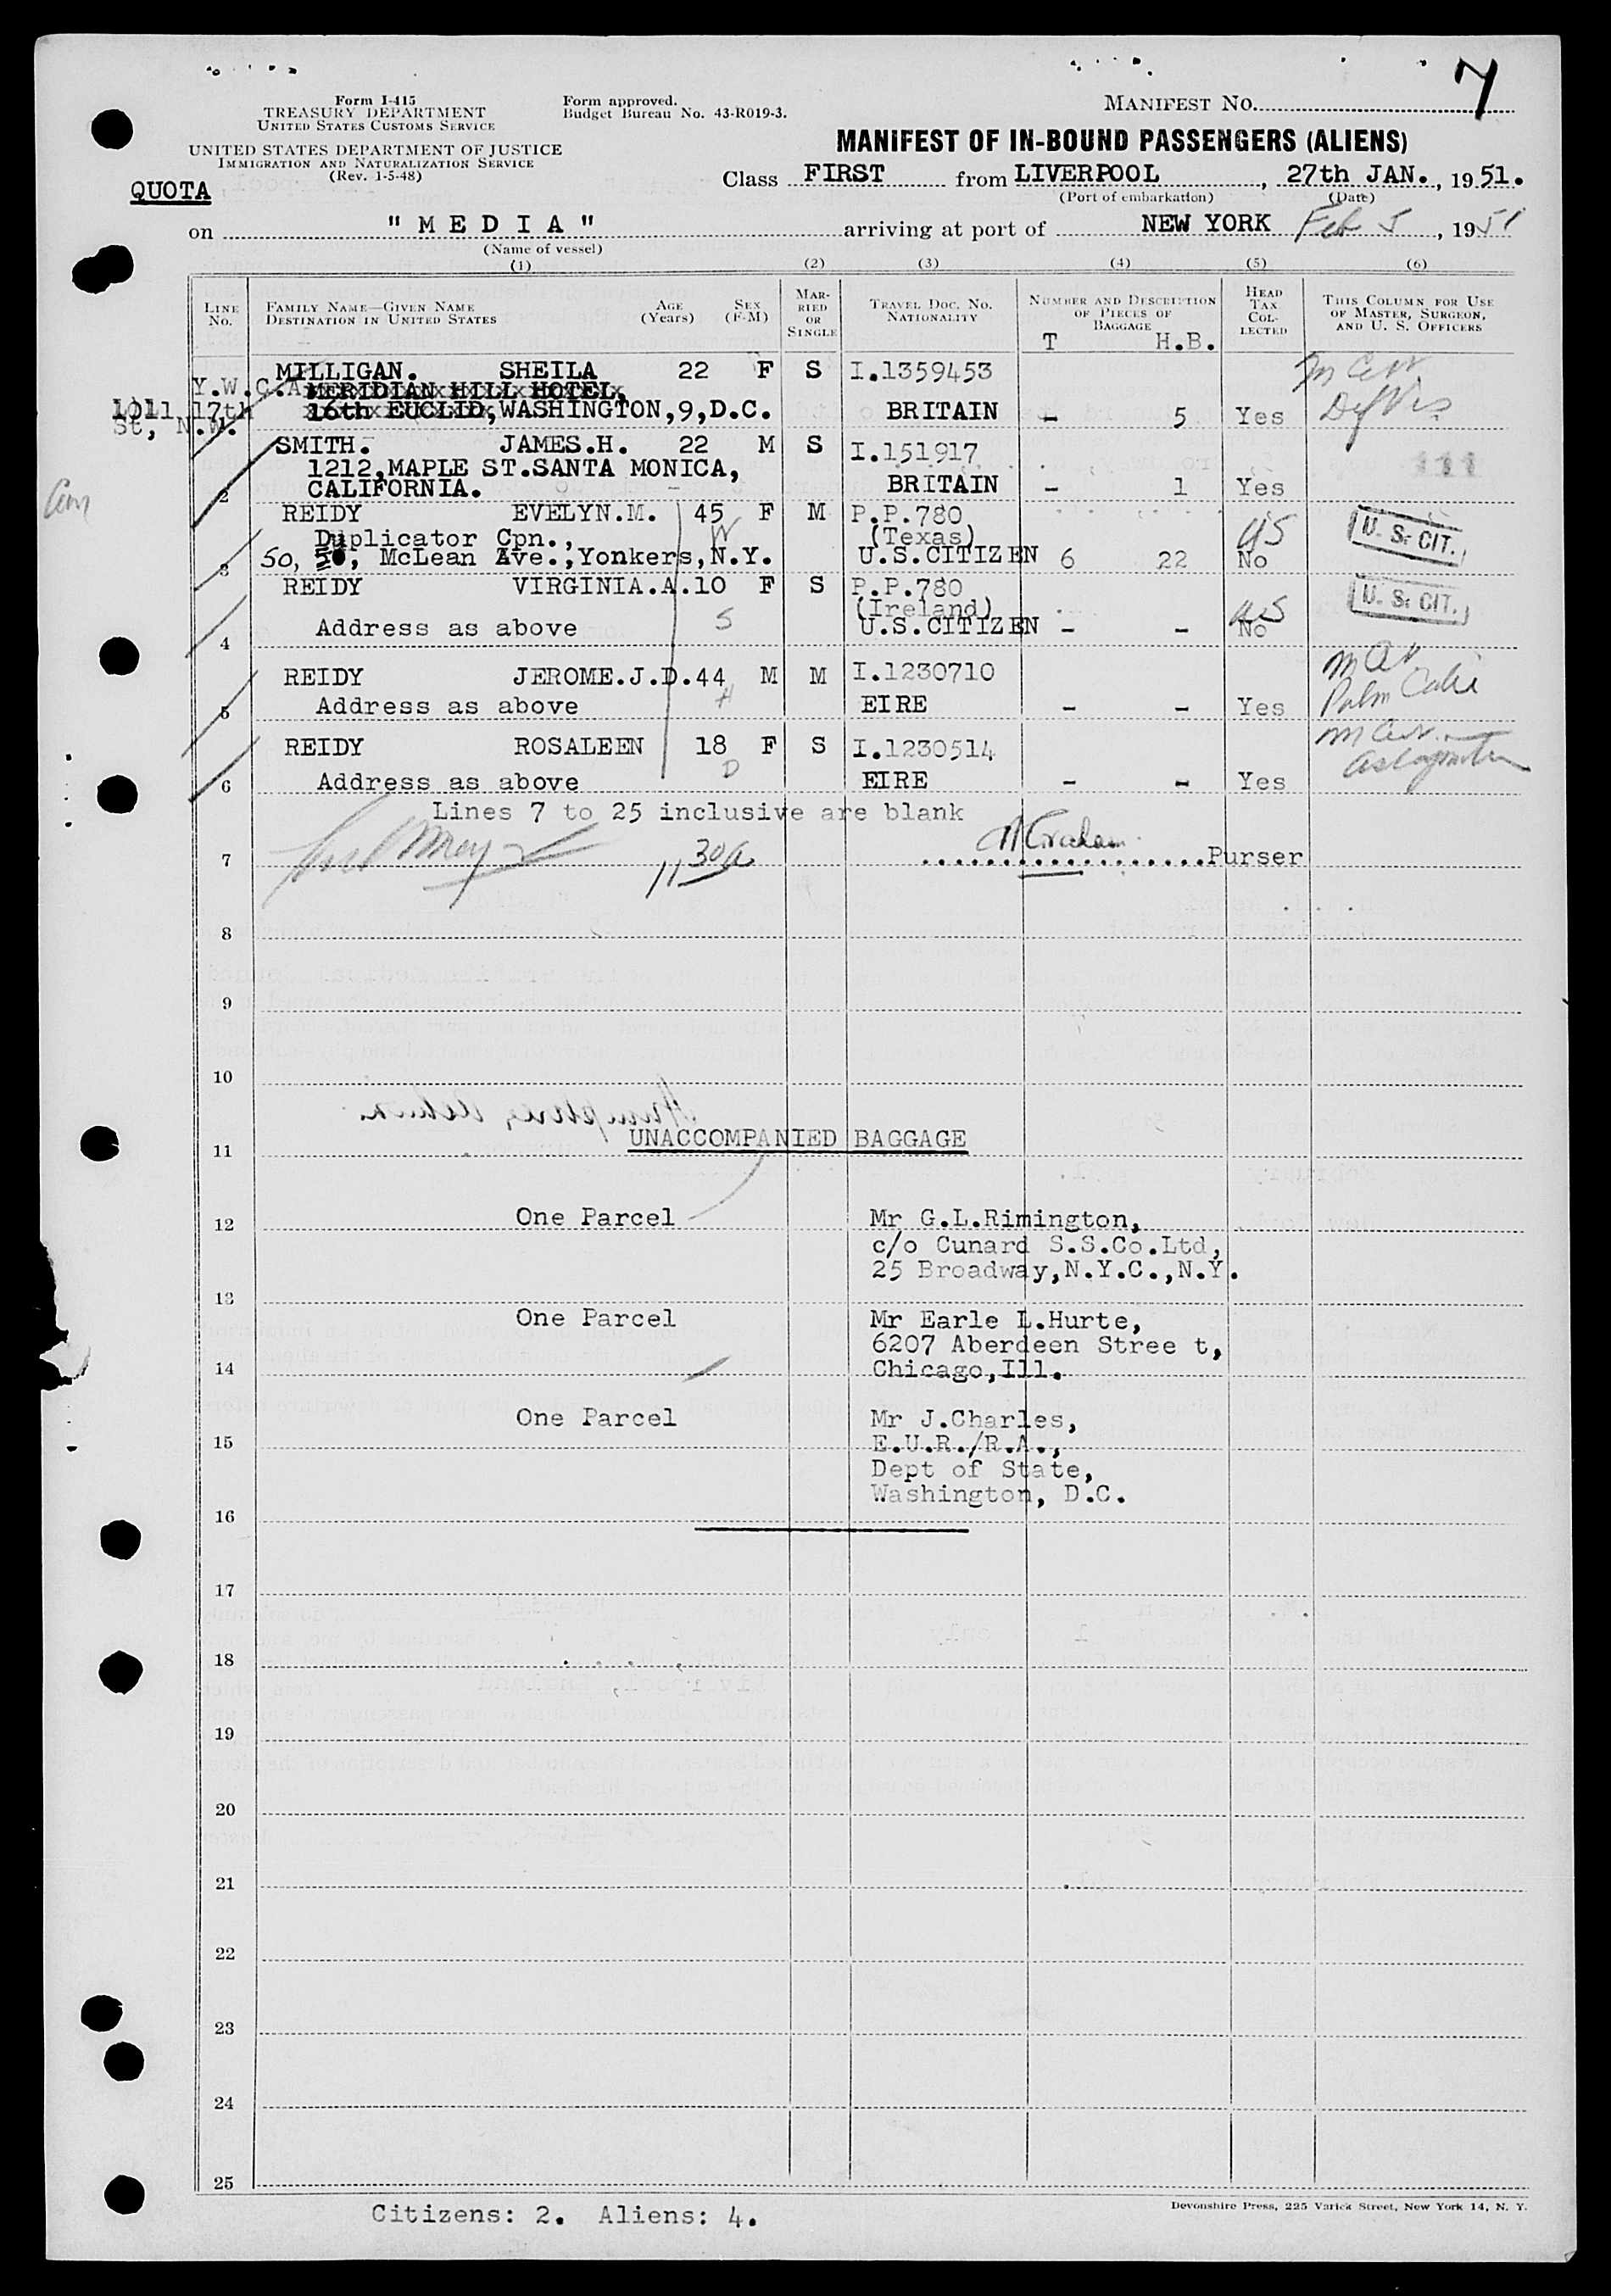 7
Form I-415
TREASURY DEPARTMENT
UNITED STATES CUSTOMS SERVICE
Form approved.
Budget Bureau No. 43-R019-3.
MANIFEST NO.
UNITED STATES DEPARTMENT OF JUSTICE
IMMIGRATION AND NATURALIZATION SERVICE
(Rev. 1-5-48)
MANIFEST OF IN-BOUND PASSENGERS (ALIENS)
QUOTA
Class FIRST from LIVERPOOL, 27th JAN., 1951.
(Port of embarkation) (Date)
on "MEDIA" arriving at port of NEW YORK Feb 5, 1951
(Name of vessel)
(1) (2) (3) (4) (5) (6)
LINE NO. FAMILY NAME—GIVEN NAME DESTINATION IN UNITED STATES AGE (Years) SEX (F-M) MARRIED OR SINGLE TRAVEL DOC. NO. NATIONALITY NUMBER AND DESCRIPTION OF PIECES OF BAGGAGE HEAD TAX COLLECTED THIS COLUMN FOR USE OF MASTER, SURGEON, AND U. S. OFFICERS
T H.B.
MILLIGAN. SHEILA 22 F S I.1359453
Y.W.C.A. MERIDIAN HILL HOTEL,
1011 17th 16th EUCLID, WASHINGTON,9,D.C. BRITAIN - 5 Yes
St, N.W.
SMITH. JAMES.H. 22 M S I.151917
1212,MAPLE ST.SANTA MONICA,
2 CALIFORNIA. BRITAIN - 1 Yes
REIDY EVELYN.M. 45 F M P.P.780
W
Duplicator Cpn., (Texas) US U. S. CIT.
3 50, McLean Ave.,Yonkers,N.Y. U.S.CITIZEN 6 22 No
REIDY VIRGINIA.A.10 F S P.P.780 U. S. CIT.
S (Ireland) US
4 Address as above U.S.CITIZEN - - No
REIDY JEROME.J.D.44 M M I.1230710
H
5 Address as above EIRE - - Yes
REIDY ROSALEEN 18 F S I.1230514
D
6 Address as above EIRE - - Yes
Lines 7 to 25 inclusive are blank
7 11 30a Purser
8
9
10
11 UNACCOMPANIED BAGGAGE
12 One Parcel Mr G.L.Rimington,
c/o Cunard S.S.Co.Ltd,
25 Broadway,N.Y.C.,N.Y.
13
One Parcel Mr Earle L.Hurte,
6207 Aberdeen Stree t,
14 Chicago,Ill.
One Parcel Mr J.Charles,
15 E.U.R./R.A.,
Dept of State,
Washington, D.C.
16
17
18
19
20
21
22
23
24
25
Citizens: 2. Aliens: 4.
Devonshire Press, 225 Varick Street, New York 14, N. Y.